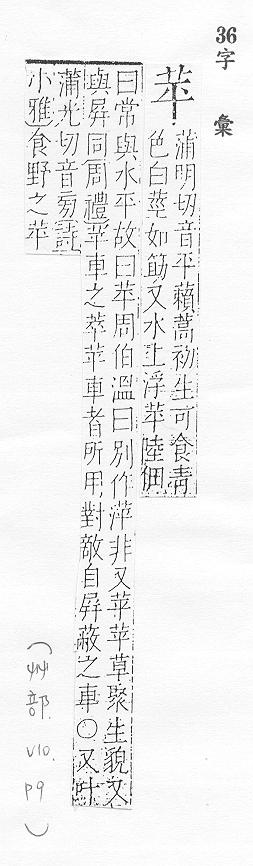 36
字彙
苹
蒲明切音平藾蒿初生可食青
色白莖如筯又水上浮苹陸佃
曰常與水平故曰苹周伯溫曰別作萍非又苹苹草聚生貌又
與屏同周禮苹車之萃苹車者所用對敵自屏蔽之車〇又叶
蒲光切音旁詩
小雅食野之苹
(艸部.
V10.
P9
)